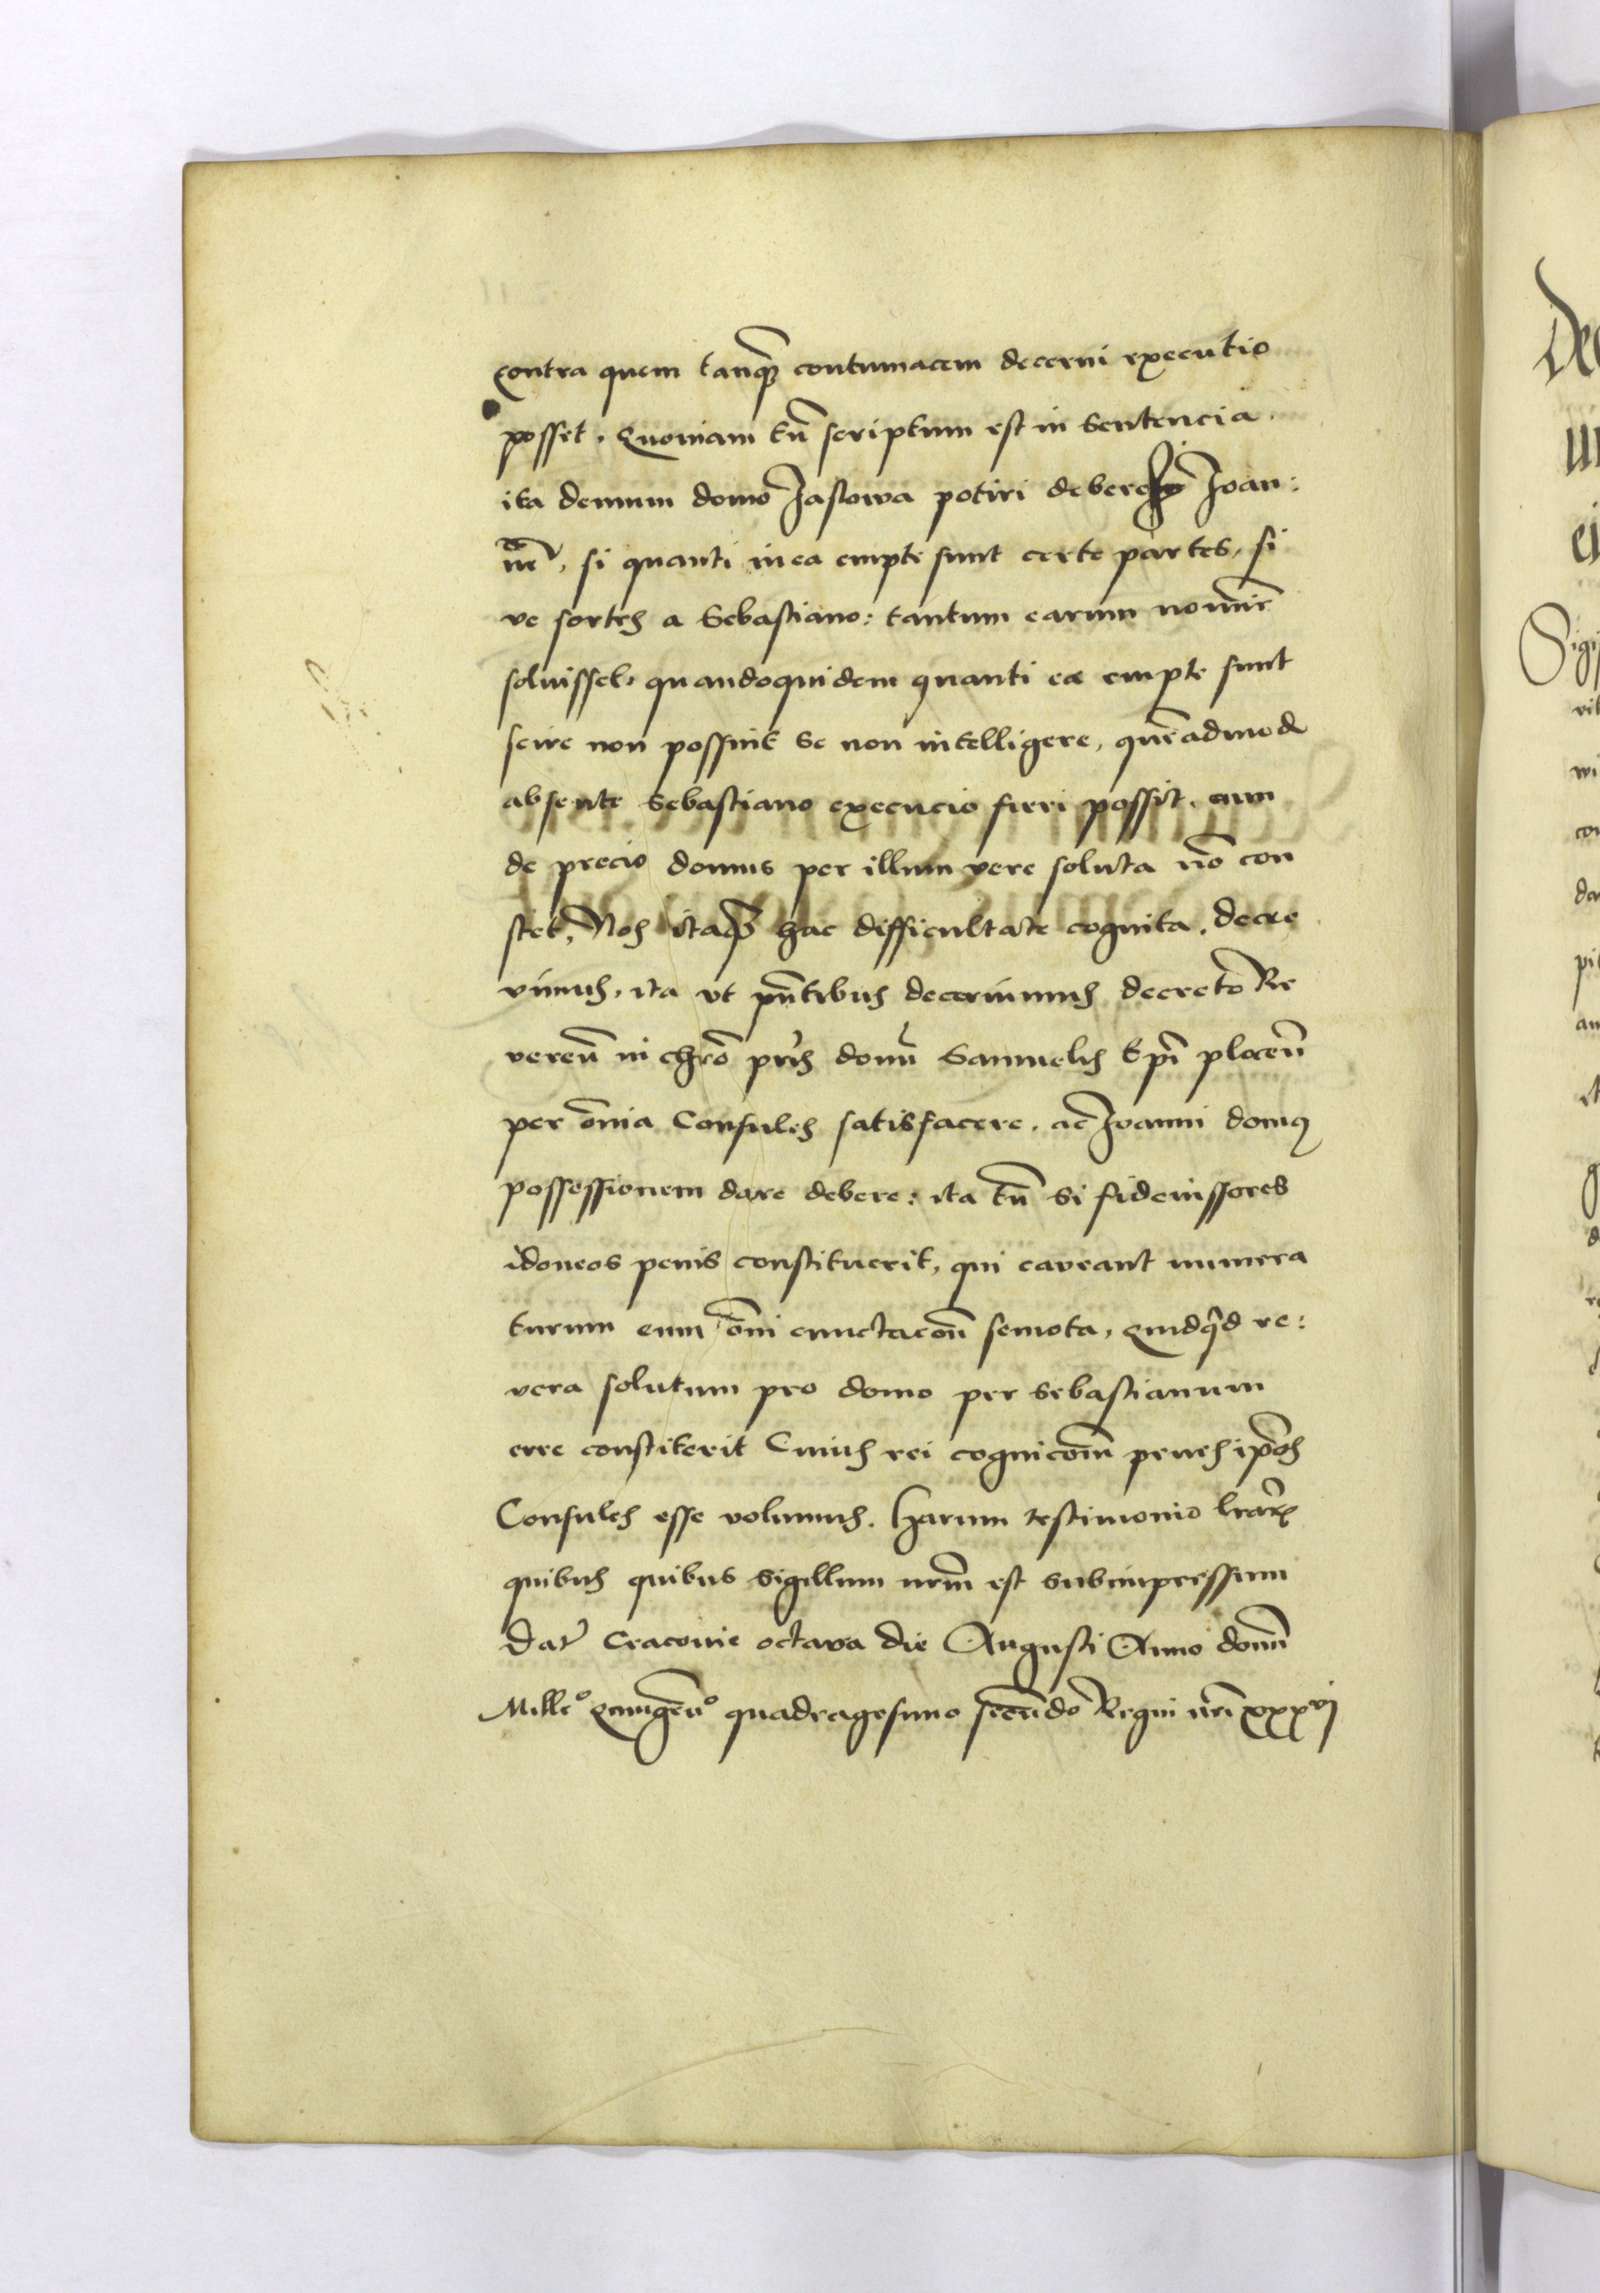 contra quem tanq̃ contumacem decerni executio
posset. Quoniam tn̄ scriptum est in sentencia.
ita demum domo Jaslowa potiri debere Joan:
nē, si quanti in ea empte sunt certe partes, si
ve sortes a Sebastiano: tantum earum nomīe
soluisset, quandoquidem quanti ee empte sunt
scire non possint se non intelligere, quēadmodū
absente Sebastiano execucio fieri possit. cum
de precio domus per illum vere soluta nō con
stet, Nos itaq̃ hac difficultate cognita. decre
vimus, ita vt pn̄tibus decernimus decreto Re
veren̄ in chrō pr̄is domī Samuelis Ep̄i plocen̄
per oīa Consules satisfacere. ac Joanni domus
possessionem dare debere: ita tn̄ si fideiussores
idoneos penis constituerit, qui caveant numera
turum eum oīni cunctacōn̄ semota, quidq̄d re:
vera solutum pro domo per sebastianum
erre constiterit Cuius rei cognicōm̄ penes ip̄os
Consules esse volumus. Harum testimonio lrar̄
quibus quibus sigillum nrm̄ est subimpressum
Dat̄ Cracovie octava die Augusti Anno domī
Mill͏o quingen͏o quadragesimo secūdo Regni nr̄i xxxvj